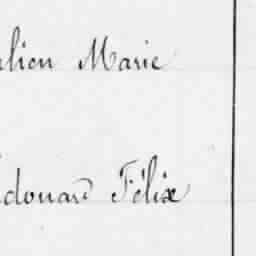 lien Marie
douard Félix